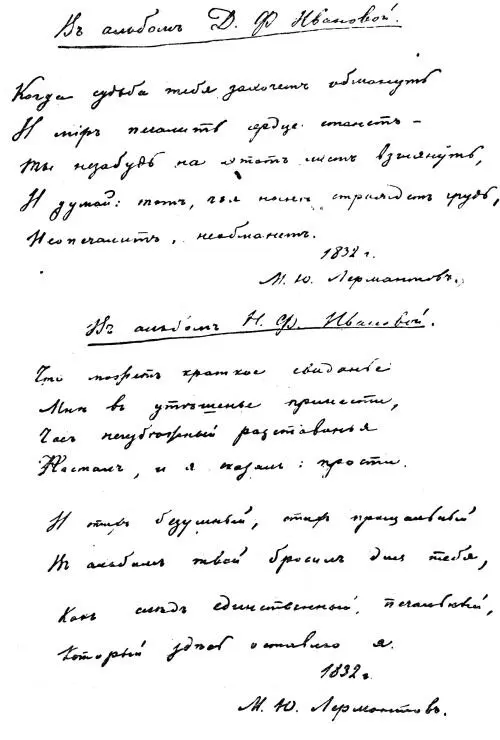 Въ альбомъ Д. Ф Ивановой.
Когда судьба тебя захочетъ обмануть
И мiръ печалить сердце станетъ –
Ты незабудь на этотъ листъ взглянуть,
И думай: тотъ, чья ныне страждетъ грудь,
Неопечалитъ, необманетъ.
1832 г.
М. Ю. Лермантовъ.
Въ альбомъ Н. Ф. Ивановой.
Что можетъ краткое свиданье
Мнѣ въ утѣшенье принести,
Часъ неизбѣжный разставанья
Насталъ, и я сказалъ: прости.
И стихъ безумный, стихъ прощальный
Въ альбомъ твой бросилъ для тебя,
Какъ слѣдъ единственный, печальный,
Который здѣсь оставлю я.
1832 г.
М. Ю. Лермонтовъ.